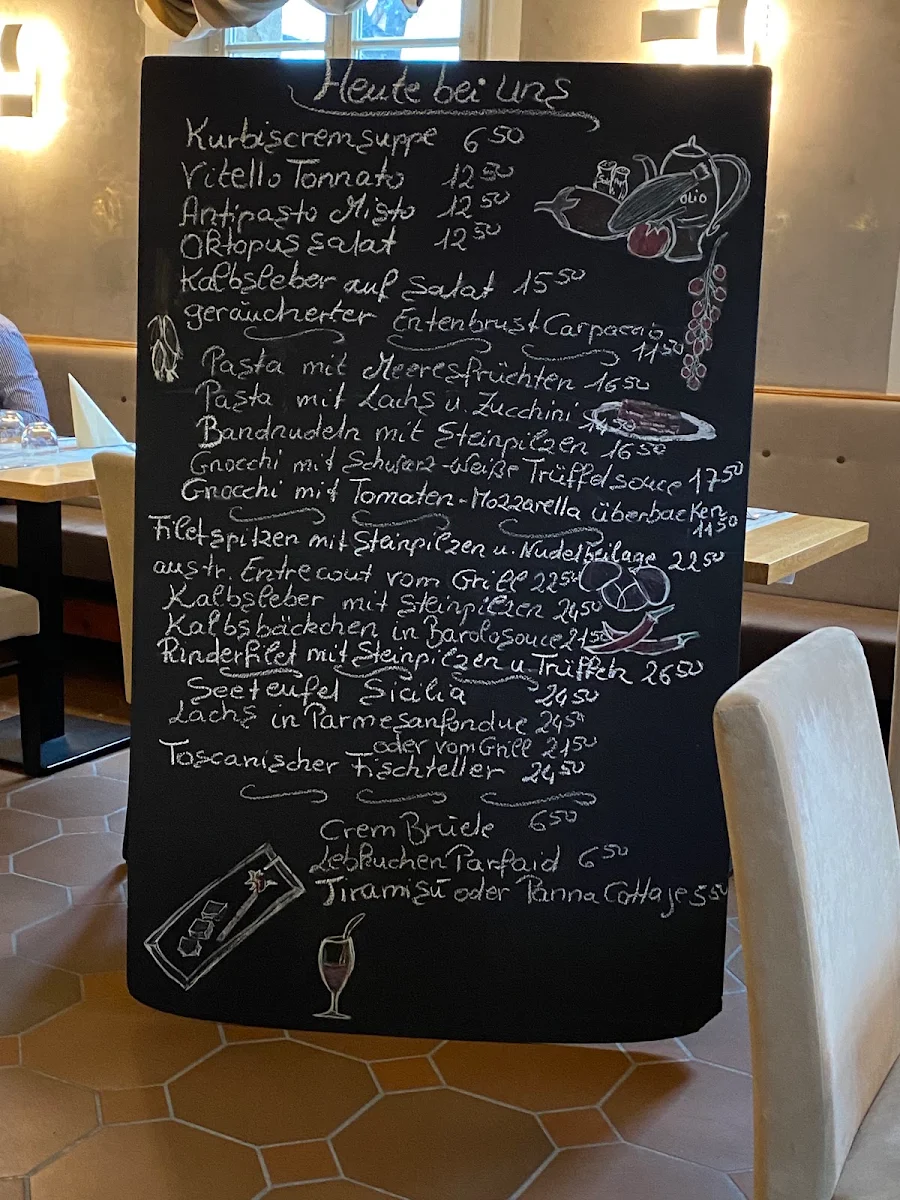 Heute bei uns
Kurbiscremsuppe 6 50
Vitello Tonnato 12 50
Antipasto Misto 12 50
OLIO
Oktopussalat 12 50
Kalbsleber auf Salat 15 50
geräucherter Entenbrust Carpaccio
11 50
Pasta mit Meeresfrüchten 16 50
Pasta mit Lachs u. Zucchini
Bandnudeln mit Steinpilzen 16 50
Gnocchi mit Schwarz-Weiße Trüffelsouce 17 50
Gnocchi mit Tomaten-Mozzarella überbacken
11 50
Filetspitzen mit Steinpilzen u. Nudelbeilage 22 50
austr. Entrecout vom Grill 22 50
Kalbsleber mit Steinpilzen 24 50
Kalbsbäckchen in Barolosouce 21 50
Rinderfilet mit Steinpilzen u Trüffeln 26 50
Seeteufel Sicilia 24 50
Lachs in Parmesanfondue 24 50
oder vom Grill 21 50
Toscanischer Fischteller 24 50
Crem Brücle 6 50
Lebkuchen Parfaid 6 50
Tiramisú oder Panna Cottaje 5 50